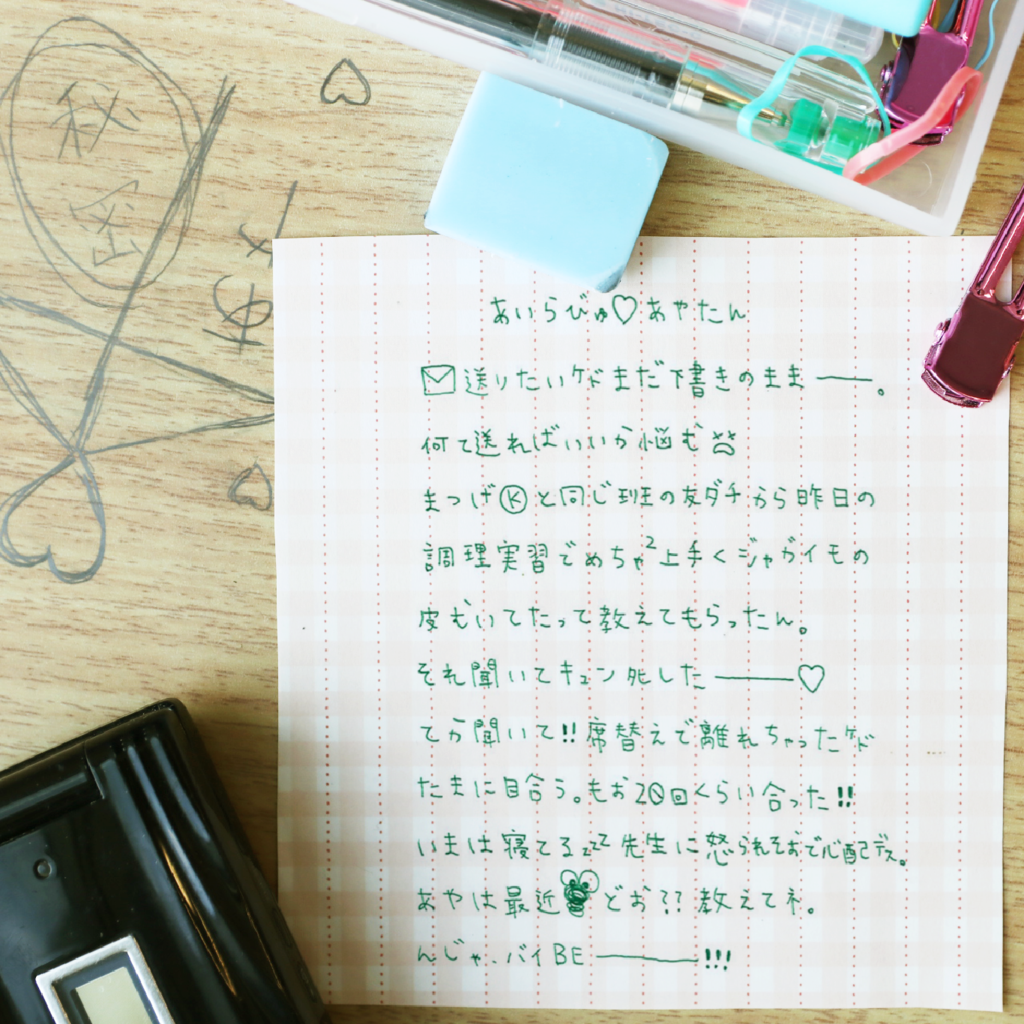 秘
密
あいらびゅ♡あやたん
✉送りたいケドまだ下書きのまま――。
何て送ればいいか悩む
まつげⓀと同じ班の友ダチから昨日の
調理実習でめちゃ²上手くジャガイモの
皮むいてたって教えてもらったん。
それ聞いてキュン死した――♡
てか聞いて!!席替えで離れちゃったケド
たまに目合う。もお20回くらい合った!!
いまは寝てるzzz先生に怒られそおで心配デス。
あやは最近どお??教えてネ。
んじゃ、バイBE――!!!